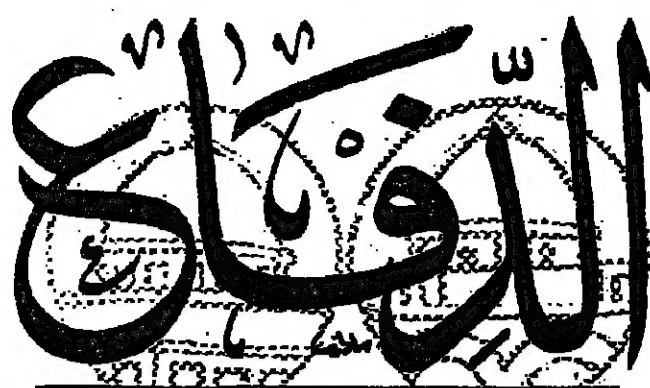 الدّفاع